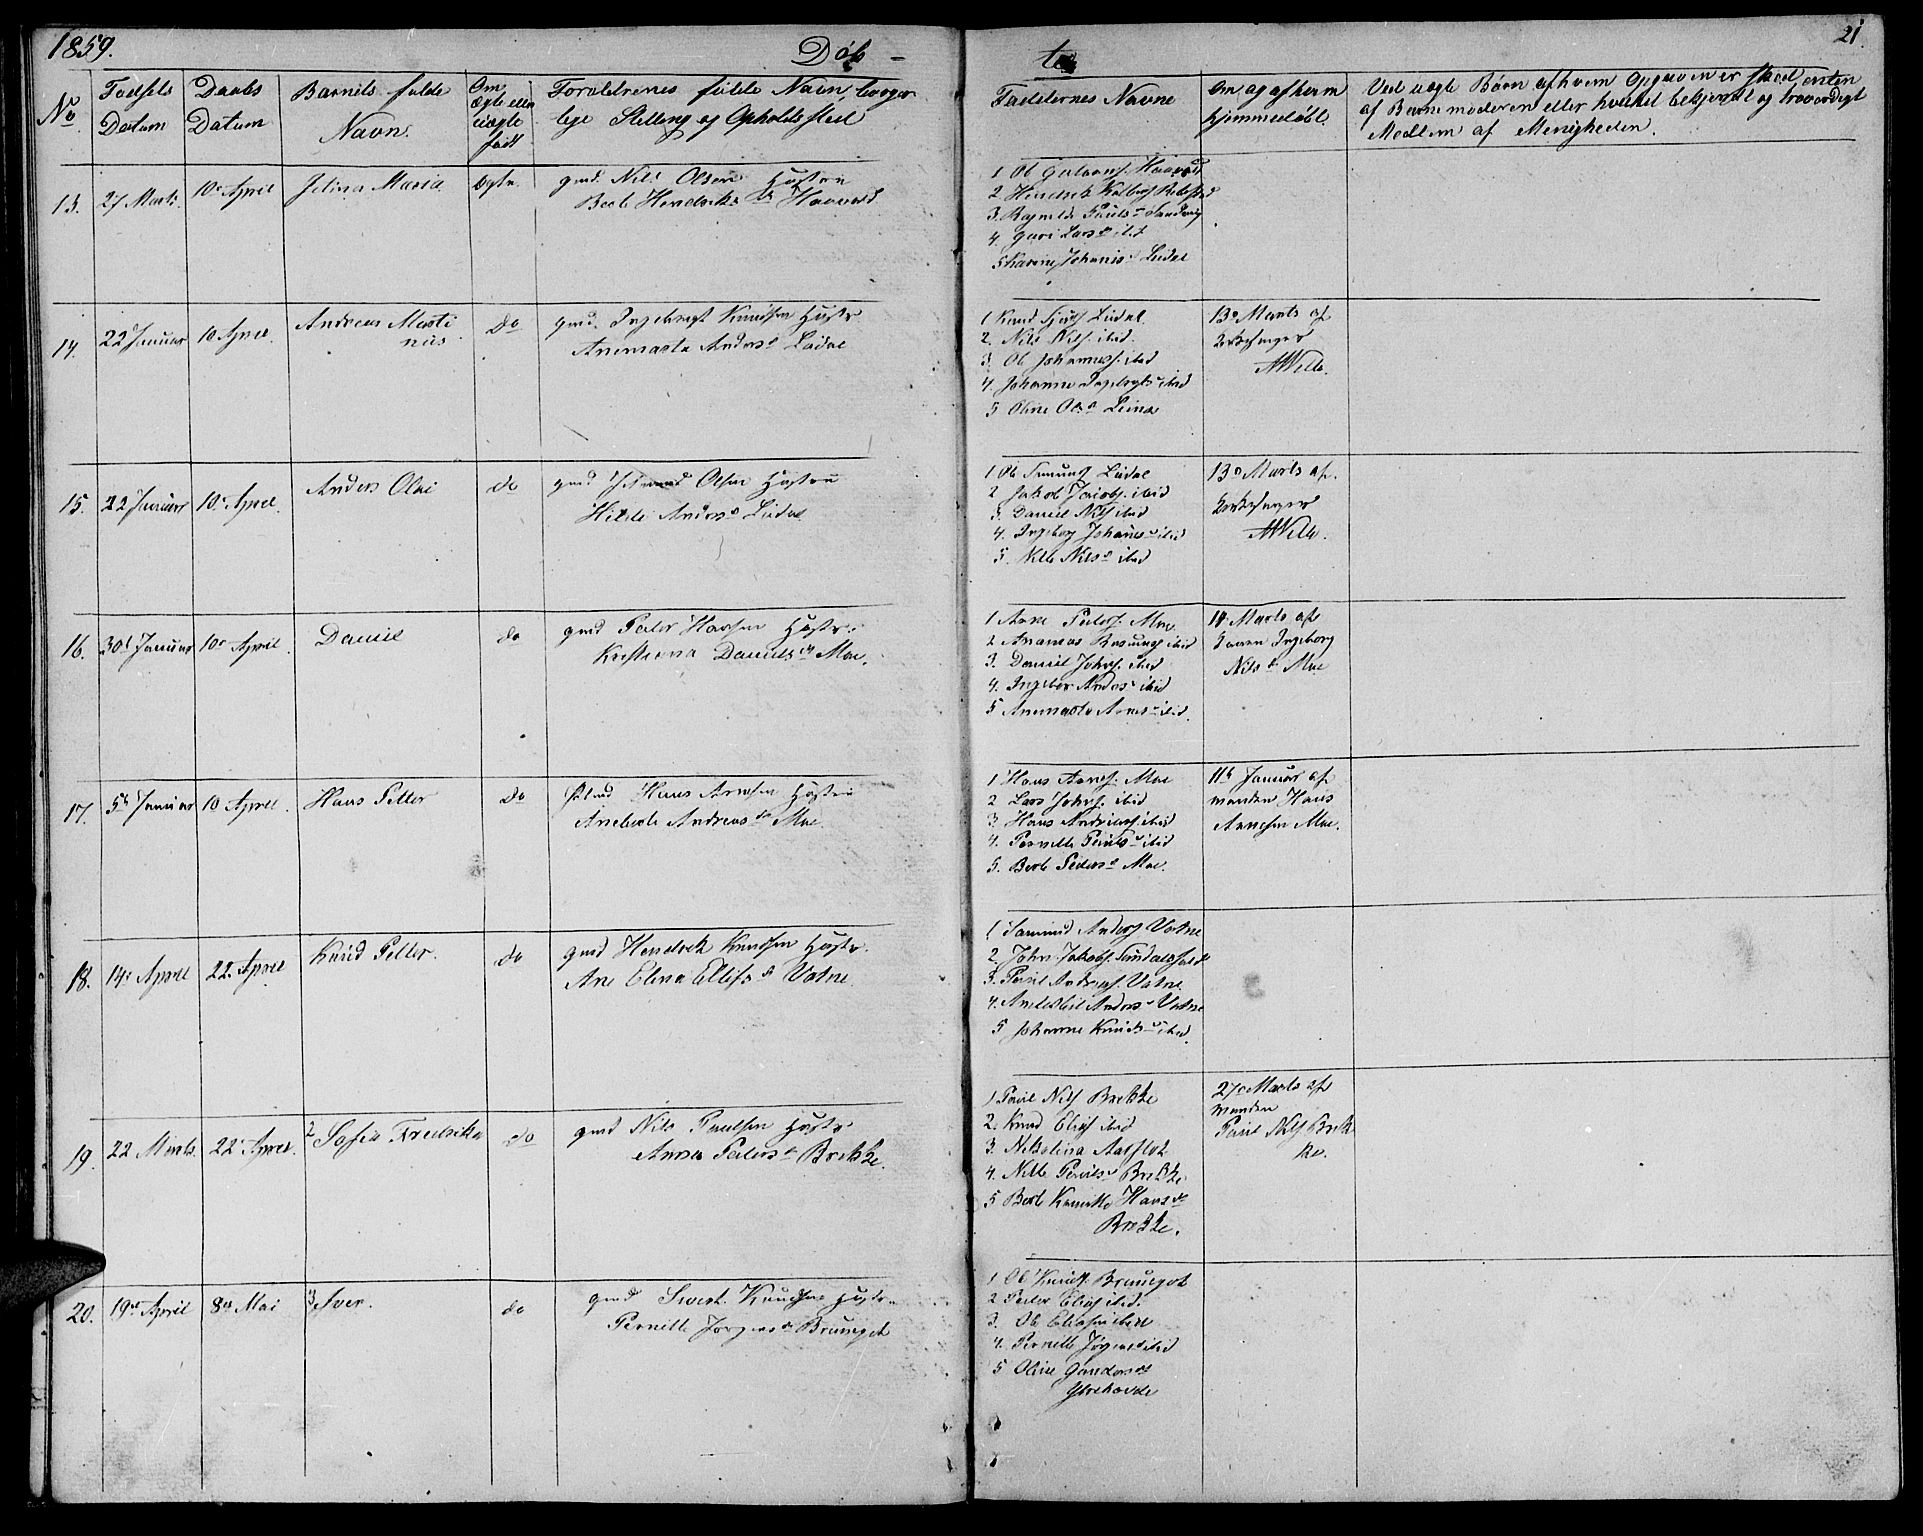 1859.
Døb-
te
21.
No
Fødsels
Datum
Daabs
Datum
Barnets fulde
Navn.
Om
ægte eller
uægte
født
Forældrenes fulde Navn, borger-
lige Stilling og Opholdssted
Faddernes Navne
Om og af hvem
hjemmedøbt.
Ved uægte Børn af hvem Opgaven er skeed enten
af Barnemoderen eller hvilket bekjendt og troværdigt
Medlem af Menigheden.
13.
27 Marts
10 April
Jelina Maria
ægte.
gmd. Nils Olsen Hustru
Berte Hendriks Dr Haavold
1 Ole
2 Hendrik
3. Ragnilde
4. Guri Lars Dr ibd
5 Karine Johanns Dr Lidal
14.
22 Januar
10 April.
Andreas Marti
nus
do
gmd. Ingebregt Knudsen Hustr.
Anemarta Anders Dr Lidal
1 Knud Lidal
2. Nils Nils. ibid.
3. Ole Johannes. ibid
4. Johanne Ingebregts Dr ibid
5 Oline Ols Dr
13 Marts af
Kirkesanger
AWelle.
15.
22 Januar
10 April.
Anders Olai
do
gmd Olsen Hustru
Hilde Anders Dr Lidal
1 Ole Lidal
2 Jakob Jacobs. ibid
3. Daniel Nils ibid
4. Ingeborg Johannes Dr ibid
5. Nille Nils Dr ibid
13 Marts af.
Kirkesanger
AWelle.
16.
30 Januar
10 April.
Daniel
do
gmd Peder Hansen Hustr.
Kristianna Daniels Dr Moe.
1 Arne Peders. Moe.
2 Rasmus ibid
3. Daniel Johns. ibid
4. Ingebor Anders Dr ibid
5 Anemarta Arnes Dr ibid.
11 Marts af
Konen Ingeborg
Nils Dr Moe
17.
5 Januar
10 April.
Hans Petter
do
Hans Arnesen Hustru
Aneberte Andreas Dr Moe.
1 Hans Arnes. Moe
2 Lars Johns. ibid
3. Hans Andreas. ibid
4. Pernille Pouls Dr ibid
5. Berte Peders Dr Moe.
11 Januar af
manden Hans
Arnesen Moe.
18.
14 April
22 April
Knud Petter.
do
gmd Hendrik Knudsen Hustr.
Ane Elena Ellifs Dr Vatne.
1 Anders Vatne
2. John Jakobs.
3. Poul Andreas. Vatne.
4. Anders Dr Vatne
5 Johanne Knuds Dr ibid.
19.
22 Marts
22 April
2 Sofie Fredrika
do
gmd Nils Poulsen Hustr.
Anna Peders Dr Brekke.
1 Poul Nils Brekke
2. Knud Elias ibid
3. Nikolina Aarflot
4. Nille Pouls Dr Brekke
5 Berte Knutte Hans Dr
Brekke.
27 Marts af
manden
Poul Nils Brek
ke.
20.
19 April
8 Mai
3 Iver.
do
gmd Sivert Knudsen Hustru
Pernille Jørgens Dr Brunegot
1 Ole Knuds. Brunegot
2 Peder Elias ibid.
3. Ole Eliasen ibid
4. Pernille Jørgens ibid
5 Oline Gunders Dr
Ytrehovde